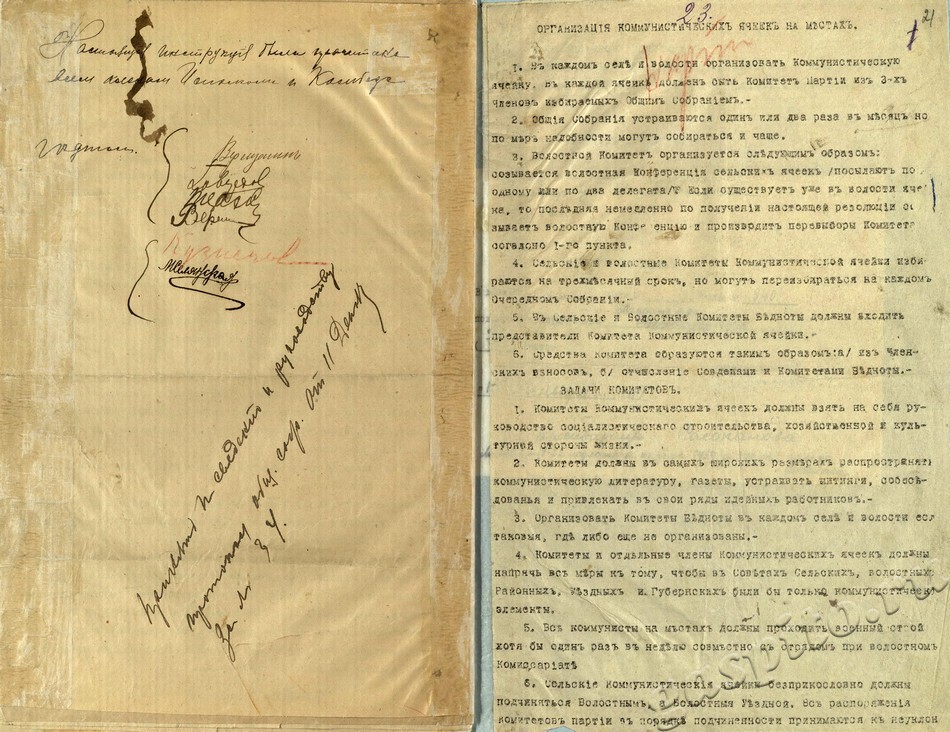 Настоящая инструкция была прочитана
всем членам Исполкома и Комбеда
Вершинин
Кузнецов
Принять к сведению и руководству
протоколу общ. собр. от 11 Декаб
за № 34.
23.
21
ОРГАНИЗАЦІЯ КОММУНИСТИЧЕСКИХЪ ЯЧЕЕКЪ НА МѢСТАХЪ.
1. Въ каждомъ селѣ и волости организовать Коммунистическую
ячейку. въ каждой ячейкѣ долженъ быть Комитетъ Партіи изъ 3-хъ
Членовъ избираемыхъ Общимъ Собраніемъ.-
2. Общія Собранія устраиваются одинъ или два раза въ мѣсяцъ но
по мѣрѣ надобности могутъ собираться и чаще.
3. Волостной Комитетъ организуется слѣдующимъ образомъ:
созывается волостная Конференція сельскихъ ячеекъ /посылаютъ по
одному или по два делегата/ Если существуетъ уже въ волости яче
ка, то послѣдняя немедленно по полученіи настоящей революціи со
зываетъ волостную Конференцію и производитъ перевыборы Комитета
согласно 1-го пункта.
4. Сельскіе и волостные Комитеты Коммунистической ячейки изби-
раются на трехмѣсячный срокъ, но могутъ переизбираться на каждомъ
Очередномъ Собраніи.-
5. Въ Сельскіе и Волостные Комитеты Бѣдноты должны входить
представители Комитета Коммунистической ячейки.-
6. Средства Комитета образуются такимъ образомъ:а/ изъ Член-
скихъ взносовъ, б/ отчисленіе Совдепами и Комитетами Бѣдноты.-
ЗАДАЧИ КОМИТЕТОВЪ.
1. Комитеты Коммунистическихъ ячеекъ должны взять на себя ру-
ководство соціалистическаго строительства, хозяйственной и куль-
турной стороны жизни.-
2. Комитеты должны въ самыхъ широкихъ размѣрахъ распространять
коммунистическую литературу, газеты, устраивать митинги, собесѣ-
дованья и привлекать въ свои ряды идейныхъ работниковъ.-
3. Организовать Комитеты Бѣдноты въ каждомъ селѣ и волости если
таковыя, гдѣ либо еще не организованы.-
4. Комитеты и отдѣльные члены Коммунистическихъ ячеекъ должны
напрячь всѣ мѣры къ тому, чтобы въ Совѣтахъ Сельскихъ, волостныхъ
Районныхъ, Уѣздныхъ и Губернскихъ были бы только коммунистическі
элементы.
5. Всѣ коммунисты на мѣстахъ должны проходить военный строй
хотя бы одинъ разъ въ недѣлю совмѣстно съ отрядомъ при волостномъ
Комиссаріатѣ
6. Сельскіе Коммунистическія ячейки безприкословно должны
подчиняться Волостнымъ, а Волостныя Уѣздной. Всѣ распоряженія
Комитетовъ партіи въ порядкѣ подчиненности принимаются къ неуклон